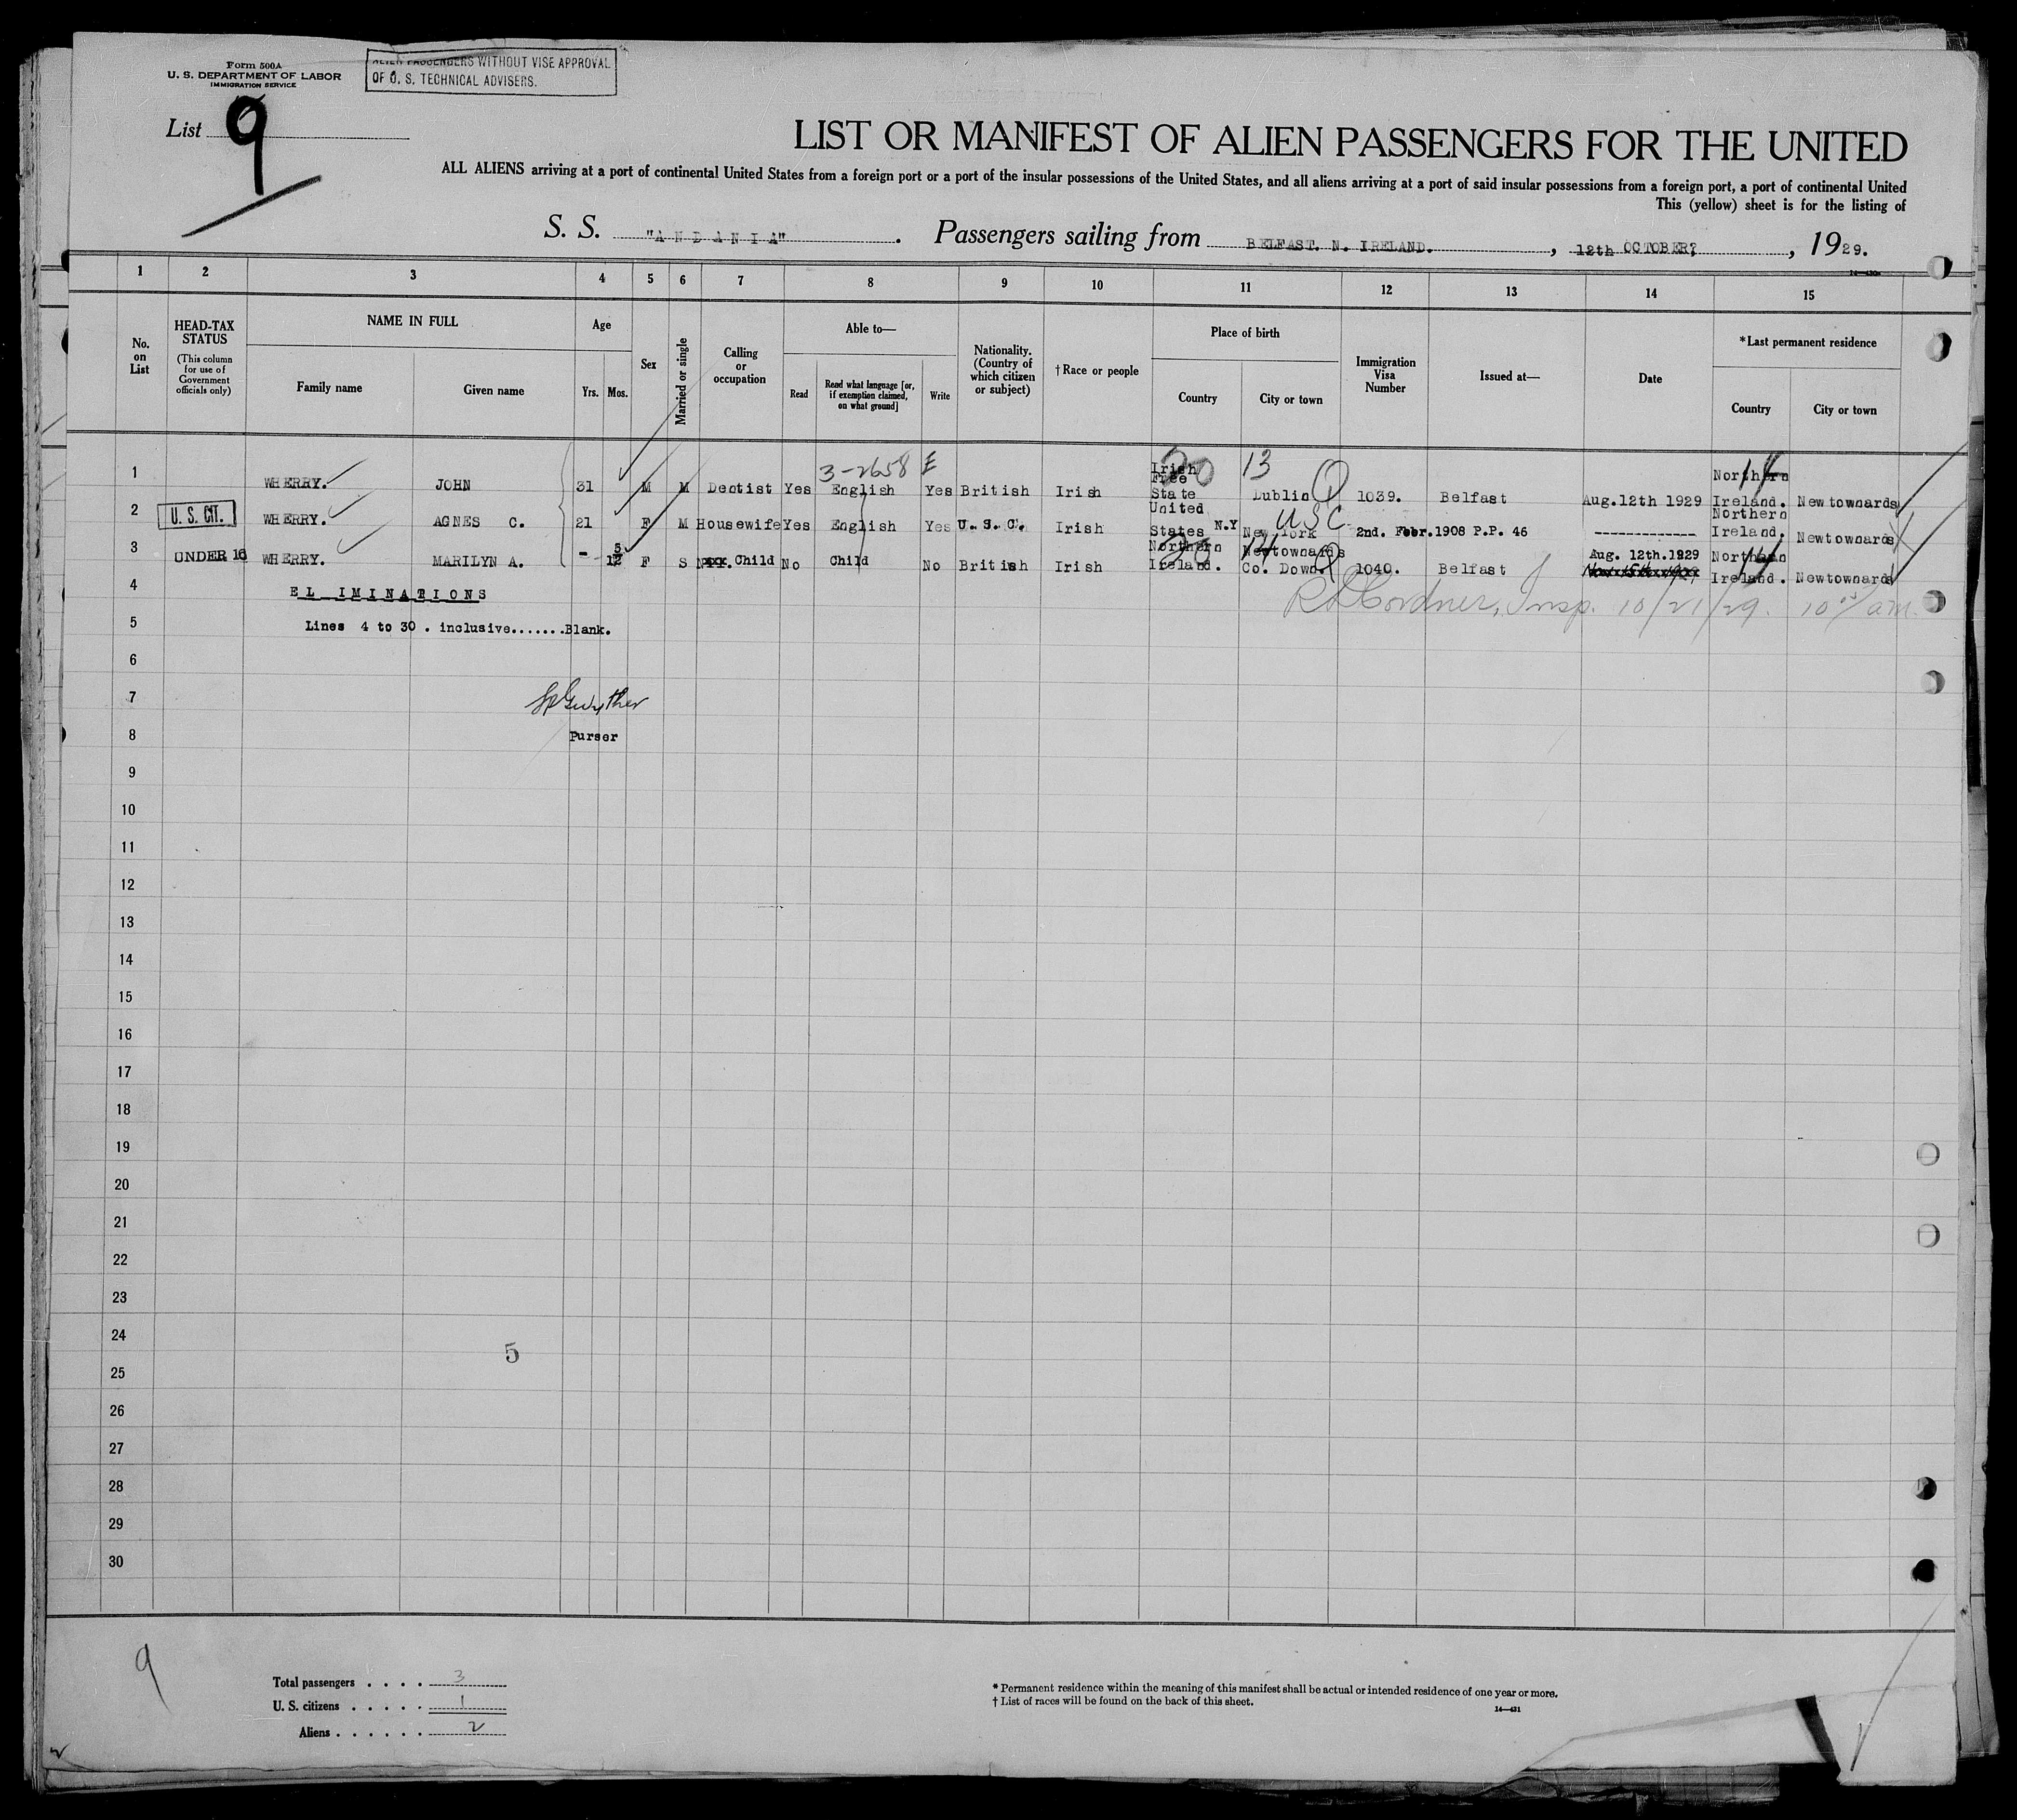 Form 500A
U. S. DEPARTMENT OF LABOR
IMMIGRATION SERVICE
ALIEN PASSENGERS WITHOUT VISE APPROVAL
OF U. S. TECHNICAL ADVISERS.
List 9
LIST OR MANIFEST OF ALIEN PASSENGERS FOR THE UNITED
ALL ALIENS arriving at a port of continental United States from a foreign port or a port of the insular possessions of the United States, and all aliens arriving at a port of said insular possessions from a foreign port, a port of continental United
This (yellow) sheet is for the listing of
S. S. "ANDANIA". Passengers sailing from BELFAST. N. IRELAND., 12th OCTOBER?, 1929.
1 2 3 4 5 6 7 8 9 10 11 12 13 14 15
No. on List
HEAD-TAX STATUS
(This column for use of Government officials only)
NAME IN FULL
Family name
Given name
Age
Yrs. Mos.
Sex
Married or single
Calling or occupation
Able to—
Read
Read what language [or, if exemption claimed, on what ground]
Write
Nationality. (Country of which citizen or subject)
†Race or people
Place of birth
Country
City or town
Immigration Visa Number
Issued at—
Date
*Last permanent residence
Country
City or town
3-2658 E 20 13 14
1 WHERRY. JOHN 31 M M Dentist Yes English Yes British Irish Irish Free State Dublin 1039. Belfast Aug.12th 1929 Northern Ireland. Newtownards
USC
2 U. S. CIT. WHERRY. AGNES C. 21 F M Housewife Yes English Yes U. S. C. Irish United States N.Y New York 2nd. Febr. 1908 P.P. 46 ------------- Northern Ireland. Newtownards
20 14 14
3 UNDER 16 WHERRY. MARILYN A. - 5/12 F S Child No Child No British Irish Northern Ireland. Newtownards Co. Down. 1040. Belfast Aug. 12th.1929 Northern Ireland. Newtownards
4 ELIMINATIONS
R D Cordner, Insp. 10/21/29. 10 am.
5 Lines 4 to 30. inclusive.......Blank.
6
7 Gwyther
8 Purser
9
10
11
12
13
14
15
16
17
18
19
20
21
22
23
24
5
25
26
27
28
29
30
9
Total passengers . . . . 3
U. S. citizens . . . . . 1
Aliens . . . . . . 2
* Permanent residence within the meaning of this manifest shall be actual or intended residence of one year or more.
† List of races will be found on the back of this sheet.
14—431